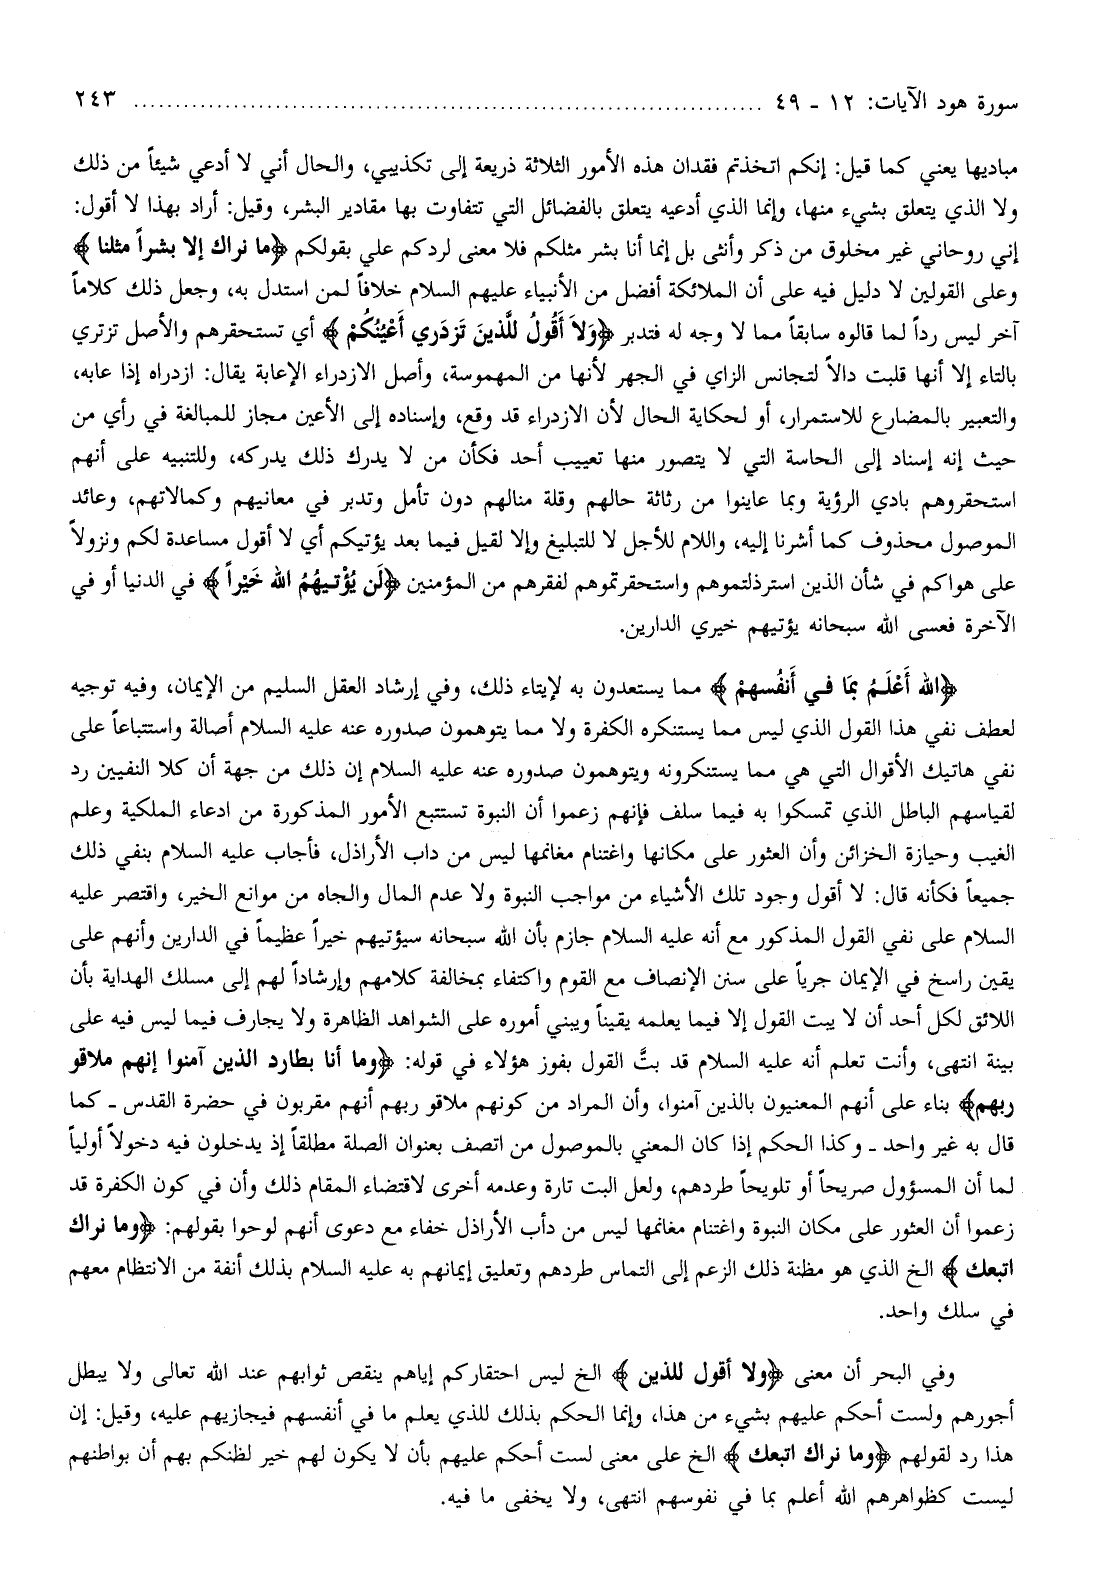 سورة هود الآيات: ١٢ ـ ٤٩ ........................................................................ ٢٤٣
مباديها يعني كما قيل: إنكم اتخذتم فقدان هذه الأمور الثلاثة ذريعة إلى تكذيبي، والحال أني لا أدعي شيئاً من ذلك
ولا الذي يتعلق بشيء منها، وإنما الذي أدعيه يتعلق بالفضائل التي تتفاوت بها مقادير البشر، وقيل: أراد بهذا لا أقول:
إني روحاني غير مخلوق من ذكر وأنثى بل إنما أنا بشر مثلكم فلا معنى لردكم علي بقولكم ﴿ما نراك إلا بشراً مثلنا﴾
وعلى القولين لا دليل فيه على أن الملائكة أفضل من الأنبياء عليهم السلام خلافاً لمن استدل به، وجعل ذلك كلاماً
آخر ليس رداً لما قالوه سابقاً مما لا وجه له فتدبر ﴿وَلاَ أَقُولُ للَّذينَ تَزدَري أَعْيُنُكُمْ﴾ أي تستحقرهم والأصل تزتري
بالتاء إلا أنها قلبت دالاً لتجانس الزاي في الجهر لأنها من المهموسة، وأصل الازدراء الإعابة يقال: ازدراه إذا عابه،
والتعبير بالمضارع للاستمرار، أو لحكاية الحال لأن الازدراء قد وقع، وإسناده إلى الأعين مجاز للمبالغة في رأي من
حيث إنه إسناد إلى الحاسة التي لا يتصور منها تعييب أحد فكأن من لا يدرك ذلك يدركه، وللتنبيه على أنهم
استحقروهم بادي الرؤية وبما عاينوا من رثاثة حالهم وقلة منالهم دون تأمل وتدبر في معانيهم وكمالاتهم، وعائد
الموصول محذوف كما أشرنا إليه، واللام للأجل لا للتبليغ وإلا لقيل فيما بعد يؤتيكم أي لا أقول مساعدة لكم ونزولاً
على هواكم في شأن الذين استرذلتموهم واستحقرتموهم لفقرهم من المؤمنين ﴿لَن يُؤْتيهُمُ الله خَيْراً﴾ في الدنيا أو في
الآخرة فعسى الله سبحانه يؤتيهم خيري الدارين.
﴿الله أَعْلَمُ بمَا في أَنفُسهمْ﴾ مما يستعدون به لإيتاء ذلك، وفي إرشاد العقل السليم من الإيمان، وفيه توجيه
لعطف نفي هذا القول الذي ليس مما يستنكره الكفرة ولا مما يتوهمون صدوره عنه عليه السلام أصالة واستتباعاً على
نفي هاتيك الأقوال التي هي مما يستنكرونه ويتوهمون صدوره عنه عليه السلام إن ذلك من جهة أن كلا النفيين رد
لقياسهم الباطل الذي تمسكوا به فيما سلف فإنهم زعموا أن النبوة تستتبع الأمور المذكورة من ادعاء الملكية وعلم
الغيب وحيازة الخزائن وأن العثور على مكانها واغتنام مغانمها ليس من داب الأراذل، فأجاب عليه السلام بنفي ذلك
جميعاً فكأنه قال: لا أقول وجود تلك الأشياء من مواجب النبوة ولا عدم المال والجاه من موانع الخير، واقتصر عليه
السلام على نفي القول المذكور مع أنه عليه السلام جازم بأن الله سبحانه سيؤتيهم خيراً عظيماً في الدارين وأنهم على
يقين راسخ في الإيمان جرياً على سنن الإنصاف مع القوم واكتفاء بمخالفة كلامهم وإرشاداً لهم إلى مسلك الهداية بأن
اللائق لكل أحد أن لا يبت القول إلا فيما يعلمه يقيناً ويبني أموره على الشواهد الظاهرة ولا يجارف فيما ليس فيه على
بينة انتهى، وأنت تعلم أنه عليه السلام قد بتَّ القول بفوز هؤلاء في قوله: ﴿وما أنا بطارد الذين آمنوا إنهم ملاقو
ربهم﴾ بناء على أنهم المعنيون بالذين آمنوا، وأن المراد من كونهم ملاقو ربهم أنهم مقربون في حضرة القدس ـ كما
قال به غير واحد ـ وكذا الحكم إذا كان المعني بالموصول من اتصف بعنوان الصلة مطلقاً إذ يدخلون فيه دخولاً أولياً
لما أن المسؤول صريحاً أو تلويحاً طردهم، ولعل البت تارة وعدمه أخرى لاقتضاء المقام ذلك وأن في كون الكفرة قد
زعموا أن العثور على مكان النبوة واغتنام مغانمها ليس من دأب الأراذل خفاء مع دعوى أنهم لوحوا بقولهم: ﴿وما نراك
اتبعك﴾ الخ الذي هو مظنة ذلك الزعم إلى التماس طردهم وتعليق إيمانهم به عليه السلام بذلك أنفة من الانتظام معهم
في سلك واحد.
وفي البحر أن معنى ﴿ولا أقول للذين﴾ الخ ليس احتقاركم إياهم ينقص ثوابهم عند الله تعالى ولا يبطل
أجورهم ولست أحكم عليهم بشيء من هذا، وإنما الحكم بذلك للذي يعلم ما في أنفسهم فيجازيهم عليه، وقيل: إن
هذا رد لقولهم ﴿وما نراك اتبعك﴾ الخ على معنى لست أحكم عليهم بأن لا يكون لهم خير لظنكم بهم أن بواطنهم
ليست كظواهرهم الله أعلم بما في نفوسهم انتهى، ولا يخفى ما فيه.